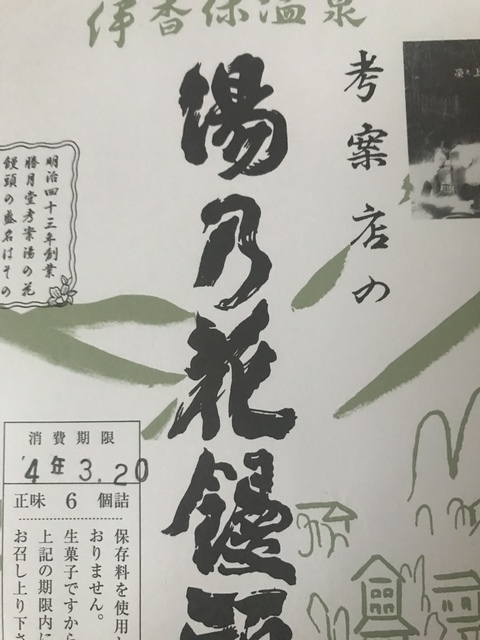 伊香保温泉
考案店の
湯乃花饅頭
明治四十三年創業
勝月堂考案湯の花
饅頭の盛名はその
消費期限
'4年3.20
正味 6 個詰
保存料を使用し
おりません。
生菓子ですから
上記の期限内に
お召し上り下さ